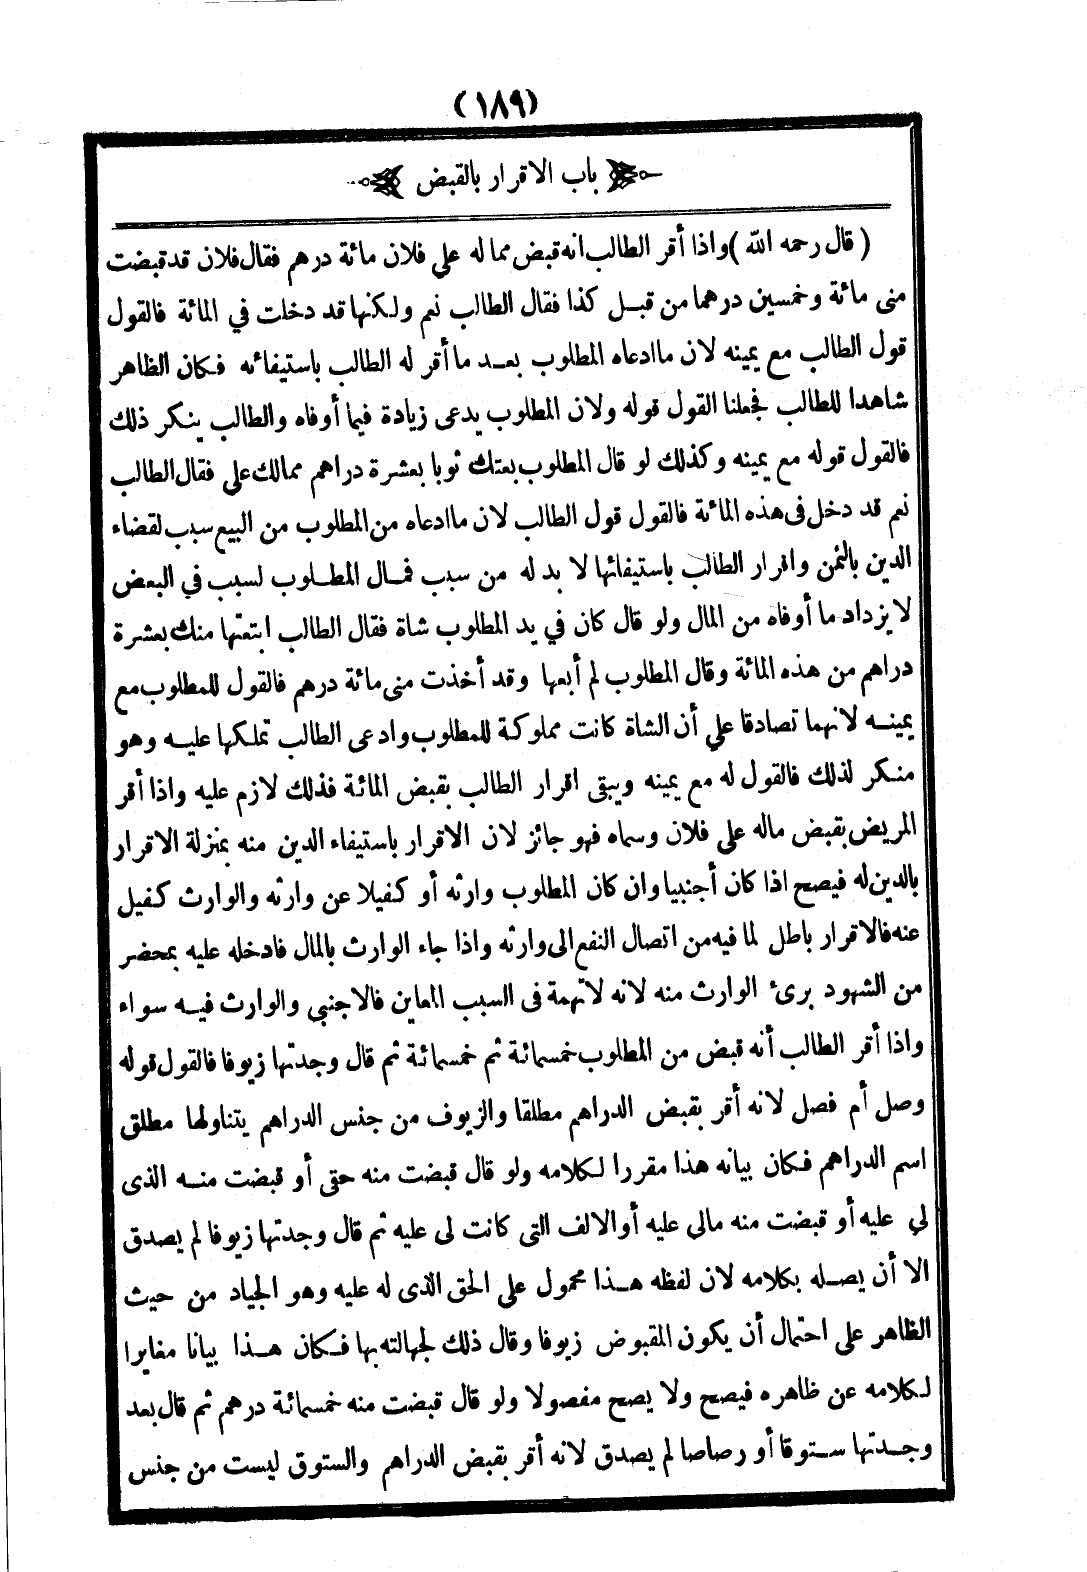 (١٨٩)
باب الاقرار بالقبض
( قال رحمه الله ) واذا أقر الطالب انه قبض مما له على فلان مائة درهم فقال فلان قد قبضت
منى مائة وخمسين درهما من قبل كذا فقال الطالب نعم ولكنها قد دخلت في المائة فالقول
قول الطالب مع يمينه لان ما ادعاه المطلوب بعد ما أقر له الطالب باستيفائه فكان الظاهر
شاهدا للطالب فجعلنا القول قوله ولان المطلوب يدعى زيادة فيما أوفاه والطالب ينكر ذلك
فالقول قوله مع يمينه وكذلك لو قال المطلوب بعتك ثوبا بعشرة دراهم ممالك على فقال الطالب
نعم قد دخل فى هذه المائة فالقول قول الطالب لان ما ادعاه من المطلوب من البيع سبب لقضاء
الدين بالثمن واقرار الطالب باستيفائها لا بد له من سبب فمال المطلوب لسبب في البعض
لا يزداد ما أوفاه من المال ولو قال كان في يد المطلوب شاة فقال الطالب ابتعتها منك بعشرة
دراهم من هذه المائة وقال المطلوب لم أبعها وقد أخذت منى مائة درهم فالقول للمطلوب مع
يمينه لانهما تصادقا على أن الشاة كانت مملوكة للمطلوب وادعى الطالب تملكها عليه وهو
منكر لذلك فالقول له مع يمينه ويبقى اقرار الطالب بقبض المائة فذلك لازم عليه واذا أقر
المريض بقبض ماله على فلان وسماه فهو جائز لان الاقرار باستيفاء الدين منه بمنزلة الاقرار
بالدين له فيصح اذا كان أجنبيا وان كان المطلوب وارثه أو كفيلا عن وارثه والوارث كفيل
عنه فالاقرار باطل لما فيه من اتصال النفع الى وارثه واذا جاء الوارث بالمال فادخله عليه بمحضر
من الشهود برئ الوارث منه لانه لا تهمة فى السبب المعاين فالاجنبي والوارث فيه سواء
واذا أقر الطالب أنه قبض من المطلوب خمسمائة ثم خمسمائة ثم قال وجدتها زيوفا فالقول قوله
وصل أم فصل لانه أقر بقبض الدراهم مطلقا والزيوف من جنس الدراهم يتناولها مطلق
اسم الدراهم فكان بيانه هذا مقررا لكلامه ولو قال قبضت منه حقى أو قبضت منه الذى
لي عليه أو قبضت منه مالى عليه أو الالف التى كانت لى عليه ثم قال وجدتها زيوفا لم يصدق
الا أن يصله بكلامه لان لفظه هذا محمول على الحق الذى له عليه وهو الجياد من حيث
الظاهر على احتمال أن يكون المقبوض زيوفا وقال ذلك لجهالته بها فكان هذا بيانا مغايرا
لكلامه عن ظاهره فيصح ولا يصح مفصولا ولو قال قبضت منه خمسمائة درهم ثم قال بعد
وجدتها ستوقا أو رصاصا لم يصدق لانه أقر بقبض الدراهم والستوق ليست من جنس